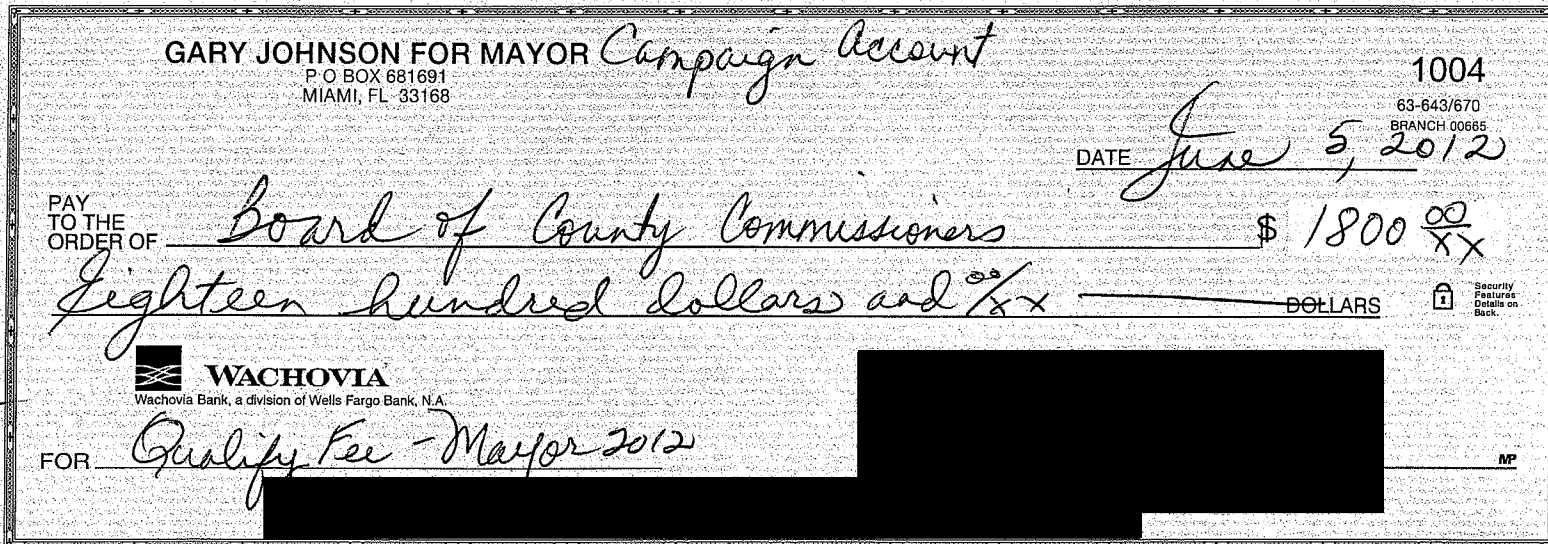 GARY JOHNSON FOR MAYOR Campaign Account
P O BOX 681691
MIAMI, FL 33168
1004
63-643/670
BRANCH 00665
DATE June 5, 2012
PAY
TO THE
ORDER OF Board of County Commissioners $ 1800 00/xx
Eighteen hundred dollars and 00/xx DOLLARS
Security
Features
Details on
Back.
WACHOVIA
Wachovia Bank, a division of Wells Fargo Bank, N.A.
FOR Qualify Fee - Mayor 2012
MP